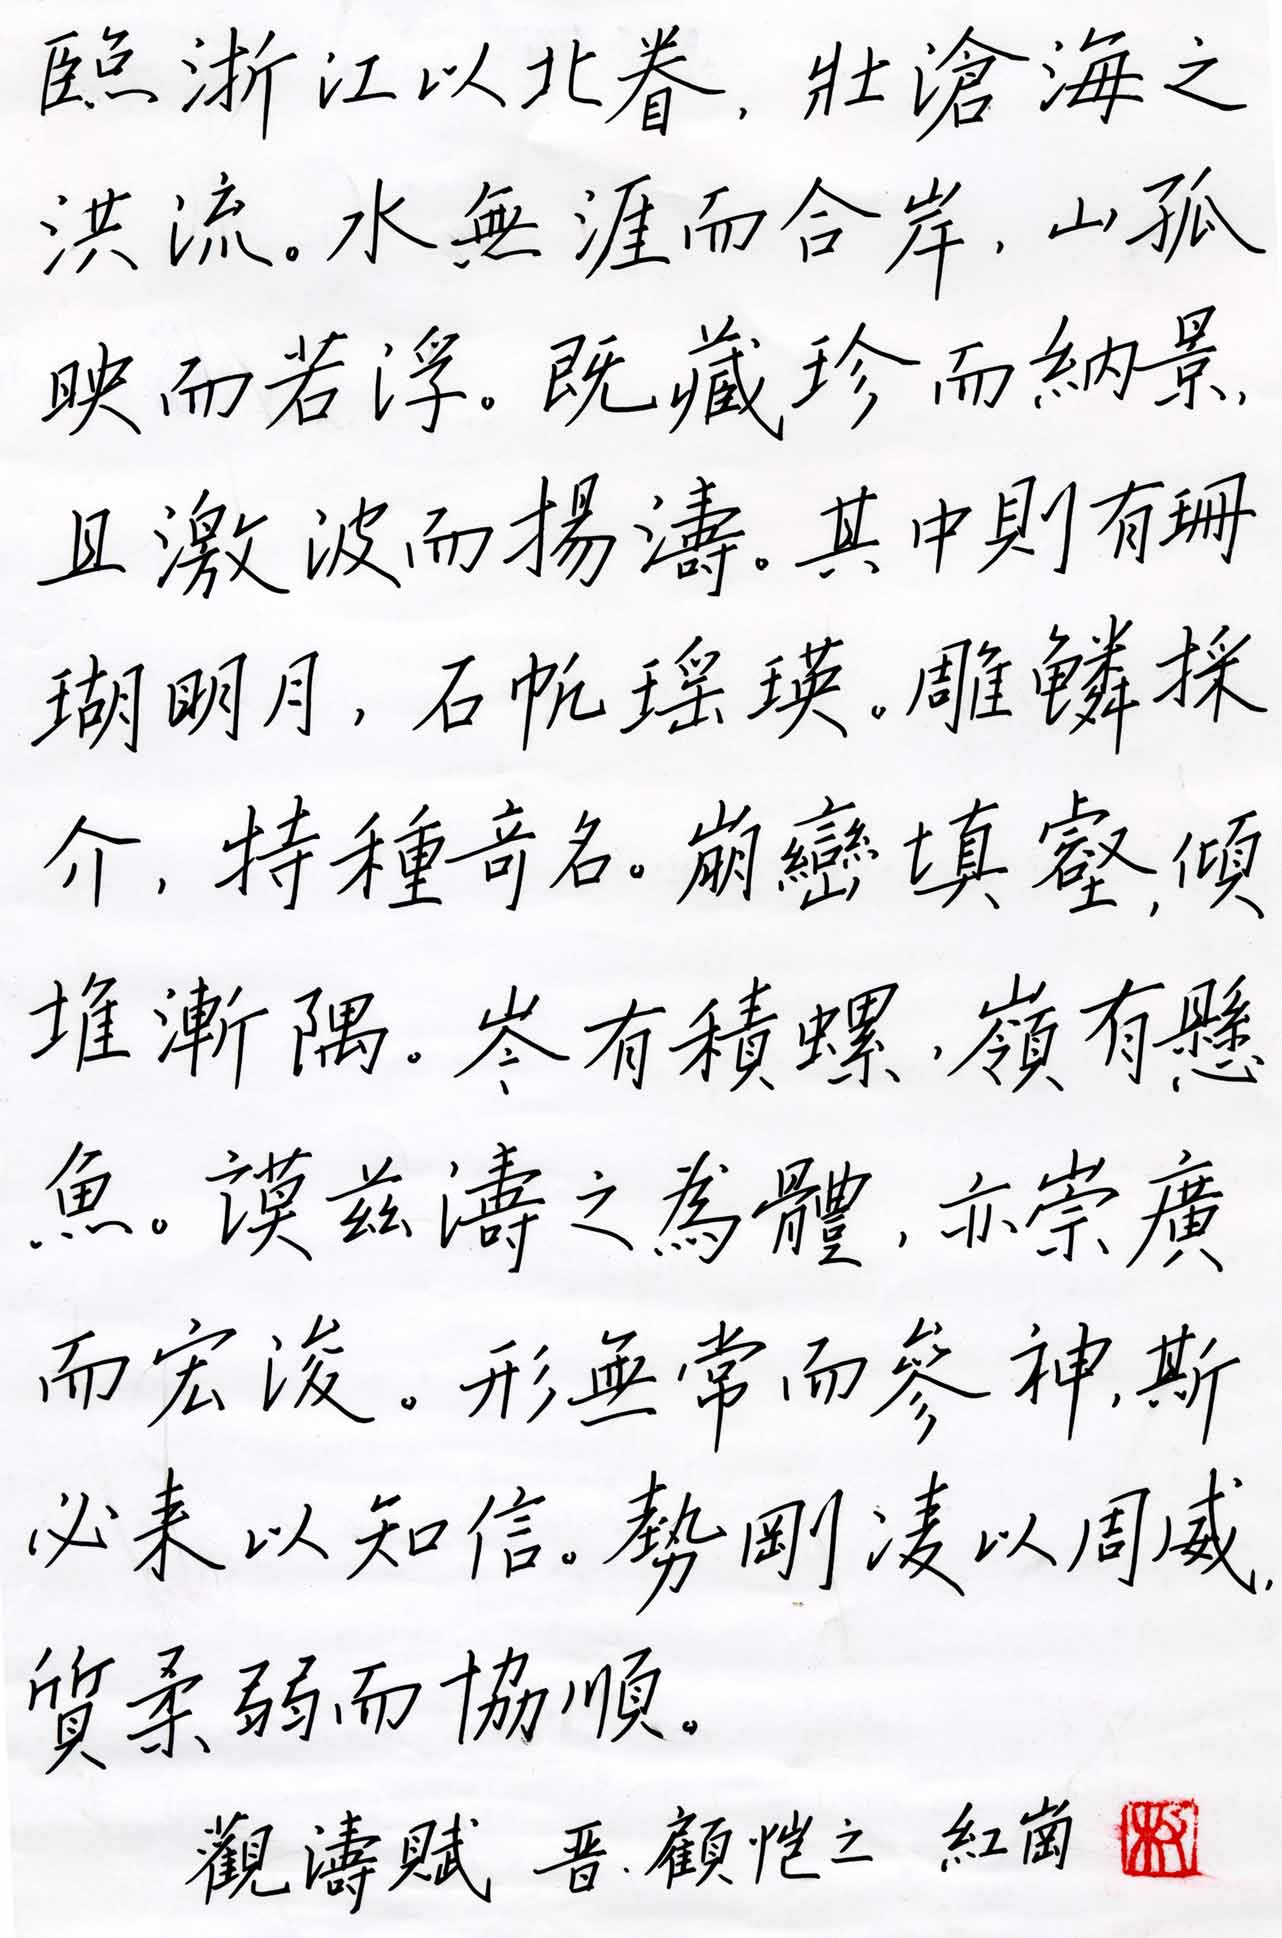 臨浙江以北眷，壯滄海之
洪流。水無涯而合岸，山孤
映而若浮。既藏珍而納景，
且激波而揚濤。其中則有珊
瑚明月，石帆瑶瑛。雕鱗採
介，特種奇名。崩巒填壑，傾
堆漸隅。岑有積螺，嶺有懸
魚。謨茲濤之為體，亦崇廣
而宏浚。形無常而參神，斯
必来以知信。勢剛凌以周威，
質柔弱而協順。
觀濤賦 晋.顧愷之 紅崗